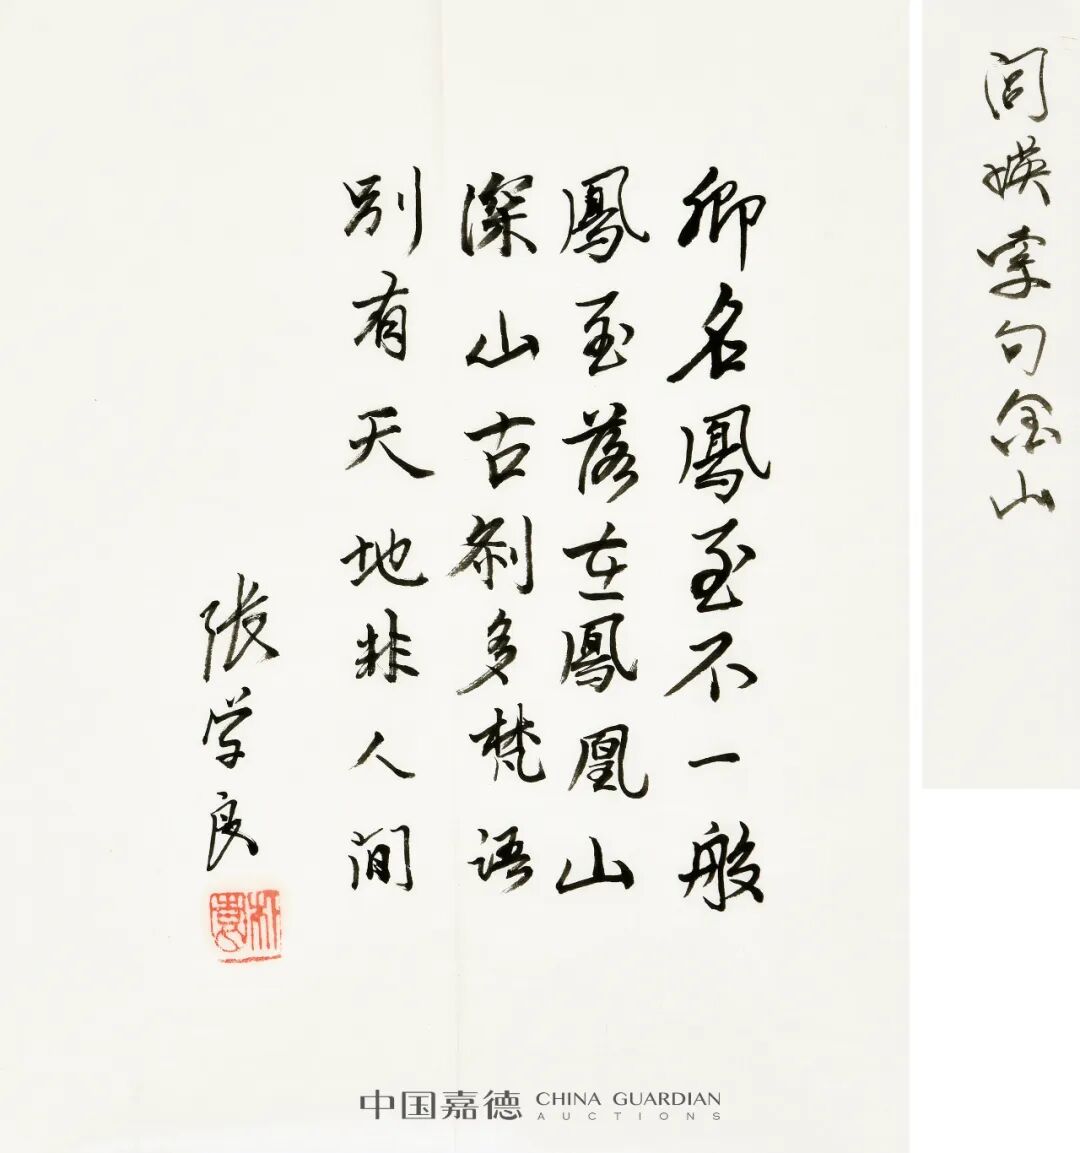 闾媖索句金山
卿名鳳至不一般
鳳至落在鳳凰山
深山古刹多梵語
别有天地非人间
張学良
中国嘉德 CHINA GUARDIAN
AUCTIONS